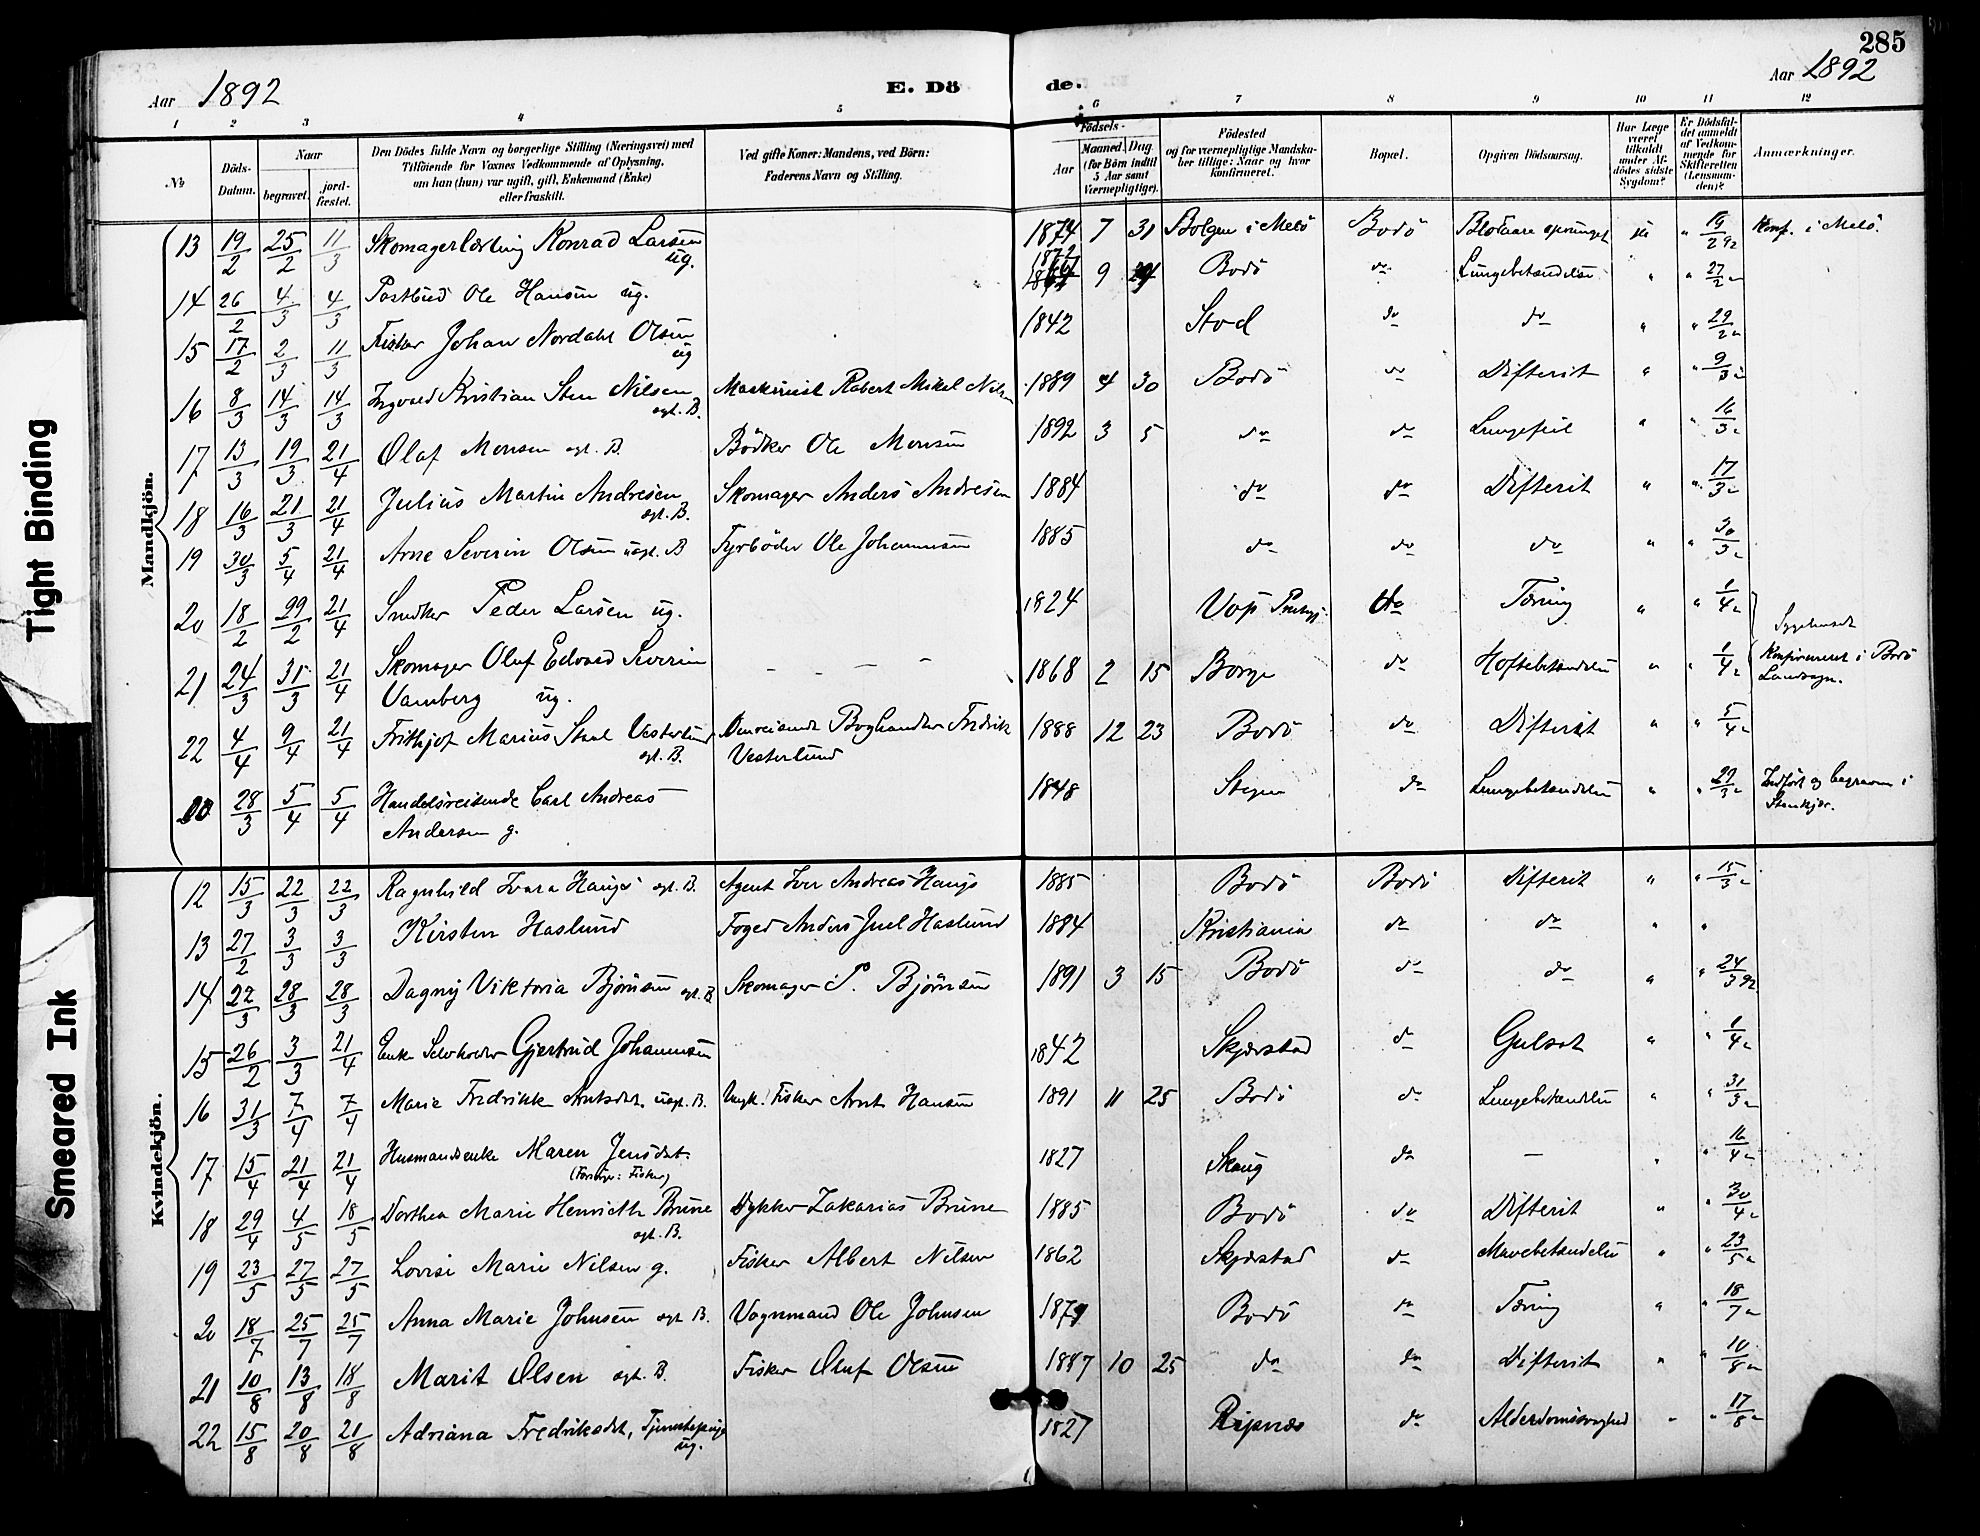 285
Aar 1892
E. Dö
de.
Aar 1892
1 2 3 4 5 6 7 8 9 10 11 12
No
Döds-
Datum.
Naar
begravet.
jord-
fæstet.
Den Dödes fulde Navn og borgerlige Stilling (Næringsvei) med
Tilföiende for Voxnes Vedkommende af Oplysning,
om han (hun) var ugift, gift, Enkemand (Enke)
eller fraskilt.
Ved gifte Koner: Mandens, ved Börn:
Faderens Navn og Stilling.
Födsels-
Aar
Maaned. Dag.
(for Börn indtil
5 Aar samt
Værnepligtige).
Födested
og for værnepligtige Mandska-
ber tillige: Naar og hvor
konfirmeret.
Bopæl.
Opgiven Dödsaarsag.
Har Læge
været
tilkaldt
under Af-
dödes sidste
Sygdom?
Er Dödsfal-
det anmeldt
af Vedkom-
mende for
Skifteretten
(Lensman-
den)?
Anmærkninger.
Mandkjön.
13 19/2 25/2 11/3 Skomagerlærling Konrad Larsen ug. 1874 7 31 Bolgen i Melö Bodö Blodaare sprunget " 19/2 92 Konf. i Melö.
14 26/2 4/3 4/3 Postbud Ole Hansen ug. 1872 9 Bodö do Lungebetændelse " " 27/2
15 17/2 2/3 11/3 Fisker Johan Nordahl Olsen ug 1842 Stod do do " " 29/2
16 8/3 14/3 14/3 Ingvard Kristian Sten Nilsen ægt. B. Maskinist Robert Mikal Nilsen 1889 4 30 Bodö do Difterit " " 9/3
17 13/3 19/3 21/4 Olaf Monsen ægt. B. Bödker Ole Monsen 1892 3 5 do do Lungefeil " " 16/3
18 16/3 21/3 21/4 Julius Martin Andresen ægt. B. Skomager Anders Andresen 1884 do do Difterit " " 17/3
19 30/3 5/4 21/4 Arne Severin Olsen uægt. B Fyrböder Ole Johannesen 1885 do do do " " 30/3
20 18/2 29/2 21/4 Snedker Peder Larsen ug. 1824 Vos do Tæring " " 1/4 Sygehuset
21 24/3 31/3 21/4 Skomager Oluf Edvard Severin
Vamberg ug. - - - 1868 2 15 Borge do Hoftebetændelse " " 1/4 Konfirmeret i Bodö
Landsogn.
22 4/4 9/4 21/4 Frithjof Marius Staal Vesterlund ægt. B. Omreisende Boghandler Fredrik
Vesterlund 1888 12 23 Bodö do Difterit " " 5/4
28/3 5/4 5/4 Handelsreisende Carl Andreas
Andersen g. 1848 Stegen do Lungebetændelse " " 29/3 Indfört og begraven i
Stenkjær.
Kvindekjön.
12 15/3 22/3 22/3 Ragnhild Ivara Haugs ægt. B. Agent Iver Andreas Haugs 1885 Bodö Bodö Difterit " " 15/3
13 27/2 3/3 3/3 Kirsten Haslund Foged Anders Juel Haslund 1884 Kristiania do do " "
14 22/3 28/3 28/3 Dagny Viktoria Bjönsen ægt. B Skomager P. Björnsen 1891 3 15 Bodö do do " " 24/3 92.
15 26/2 3/3 21/4 Enke Selvholder Gjertrud Johannesen 1842 Skjerstad do Gulsot " " 1/4
16 31/3 7/4 7/4 Marie Fredrikke Arntsdtr. uægt. B. Ungk. Fisker Arnt Hansen 1891 11 25 Bodö do Lungebetændelse " " 31/3
17 15/4 21/4 21/4 Husmandsenke Maren Jensdtr.
(Forsörger: Fisker) 1827 Skaug do - " " 16/4
18 29/4 4/5 18/5 Dorthea Marie Henriette Brune ægt. B. Dykker Zakarias Brune 1885 Bodö do Difterit " " 30/4
19 23/5 27/5 27/5 Lovise Marie Nilsen g. Fisker Albert Nilsen 1862 Skjerstad do Mavebetændelse " " 23/5
20 18/7 25/7 25/7 Anna Marie Johnsen ægt. B. Vognmand Ole Johnsen 1879 Bodö do Tæring " " 18/7
21 10/8 13/8 18/8 Marit Olsen ægt. B. Fisker Oluf Olsen 1887 10 25 do do Difterit " " 10/8
22 15/8 20/8 21/8 Adriana Fredriksdtr., Tjenestepige ug. 1827 Ripnæs do Alderdomssvaghed " " 17/8
Tight Binding
Smeared Ink